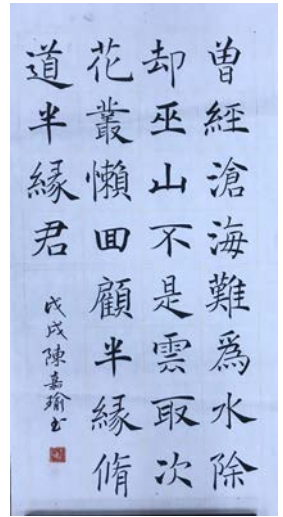 曾經滄海難爲水除
却巫山不是雲取次
花叢懶回顧半緣脩
道半緣君
戊戌陳嘉瑜書